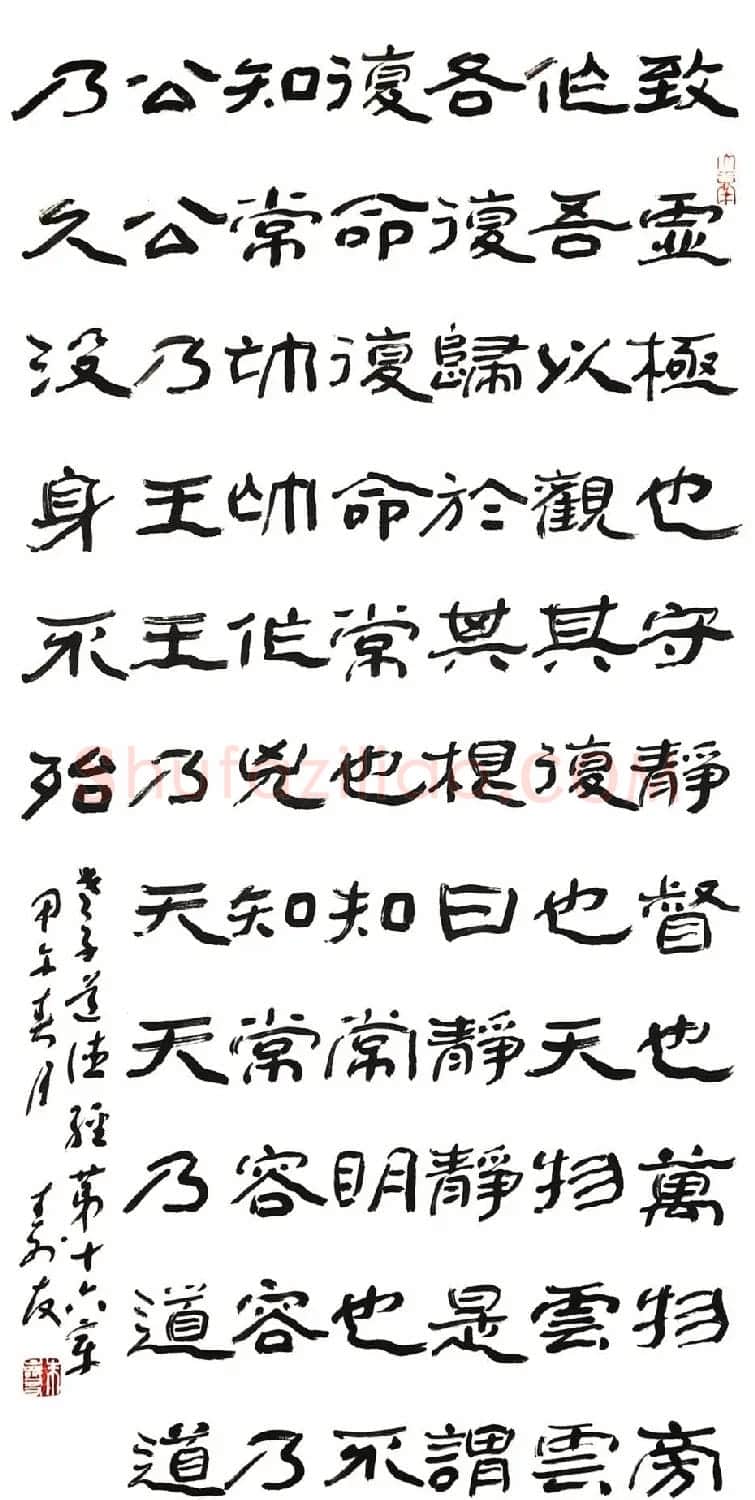 致虛極也守靜督也萬物旁
作吾以觀其復也天物雲雲
各復歸於其根曰靜靜是謂
復命復命常也知常明也不
知常作兇知常容容乃
公公乃王王乃天天乃道道
乃久没身不殆
老子道德經第十六章
甲午春月 友
Shufaziliao.COM